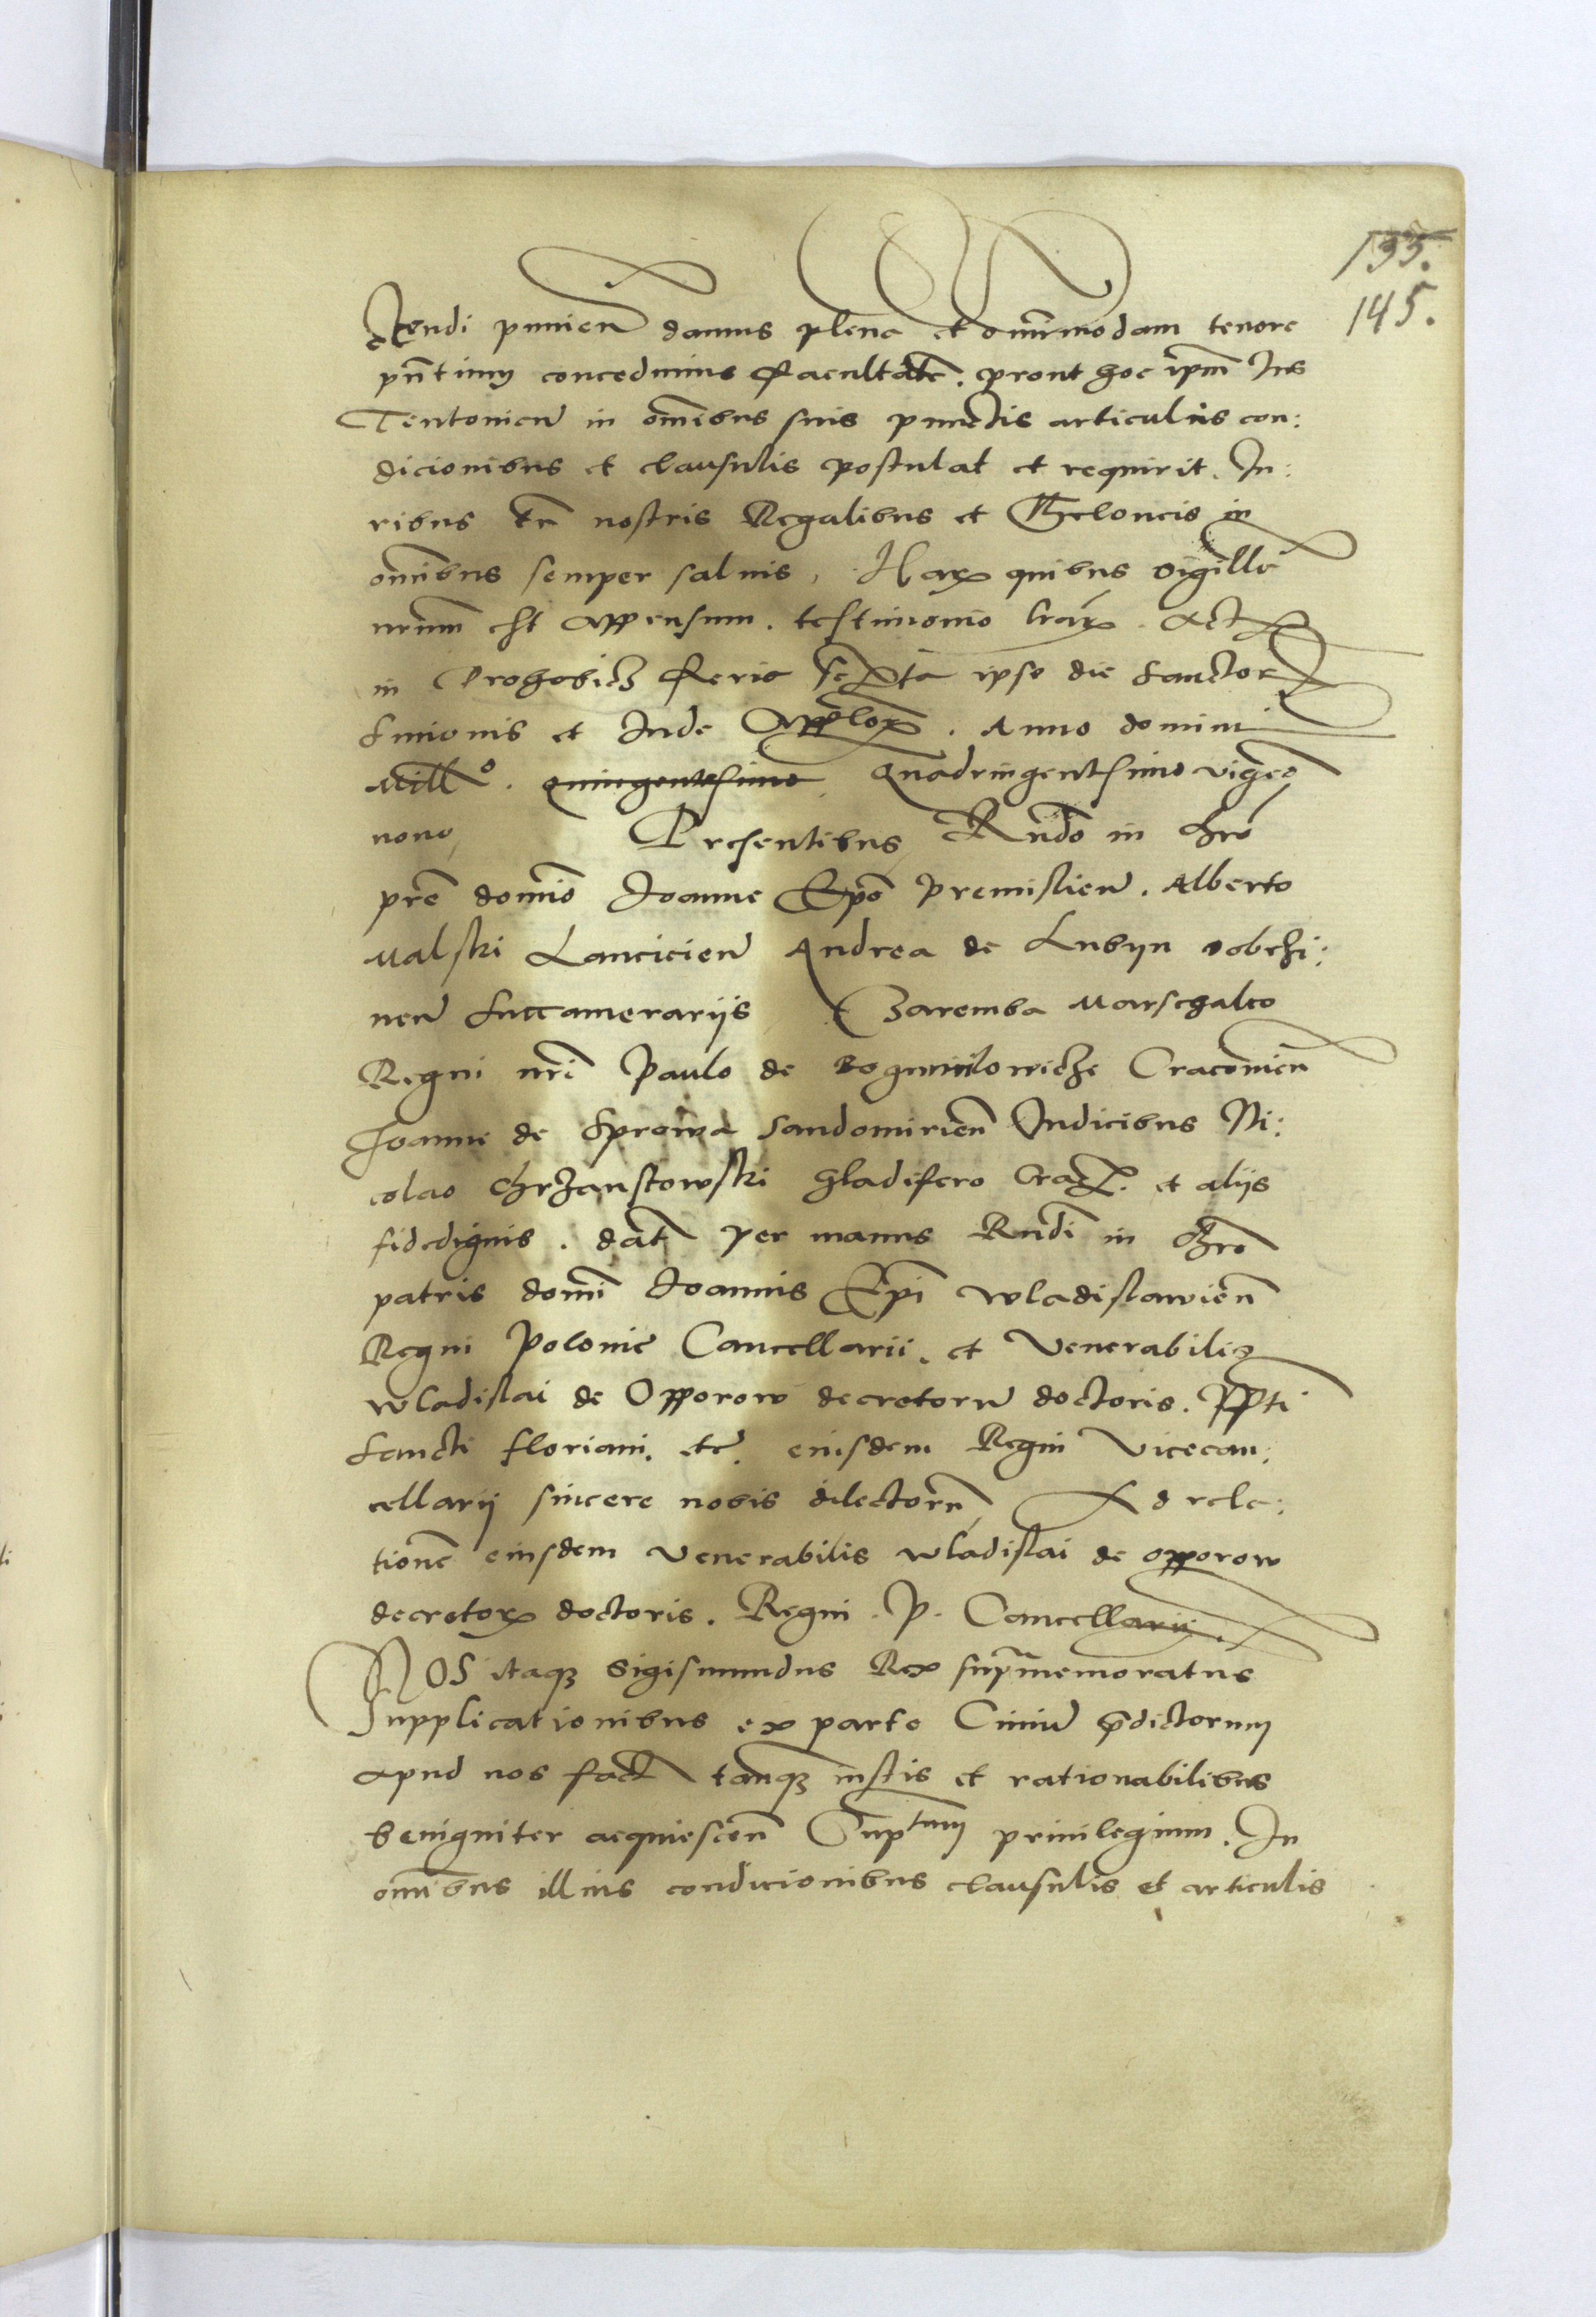 133.
145.
ctendi punien damus plena et omnimodam tenore
pntium concedimus facultate. prout hoc ipm Ius
Teutonicu in omnibus suis punctis articulis con:
dicionibus et clausulis postulat et requirit. Iu:
ribus tn nostris Regalibus et Theloneis in
omnibus semper saluis, Harx quibus Sigillu
nrum est appensum. testimonio lrarx. Act
in Drohobicz feria sexta ipso die sanctor
Simonis et Iude Applorx. Anno domini
Mill o. quingentesimo Quadringentesimo vigeo
nono Presentibus Rndo in chro
pre domino Joanne Epo premislien. Alberto
Malski Lancicien Andrea de Lubyn dobrzi:
nen Succamerarijs Zaremba Marschalco
Regni nri Paulo de Bogumilowicze Cracouien
Joanne de Sprowa Sandomirien Iudicibus Ni:
colao Chrzanstowski gladifero Crac. et alijs
fidedignis. dat per manus Rndi in chro
patris domi Joannis Epi wladislawien
Regni Polonie Cancellarii. et Venerabilis
wladislai de Opporow decretoru doctoris. Ppti
Sancti floriani. etc. eiusdem Regni vicecan:
cellarij sincere nobis dilectoru Ad rela:
tione eiusdem venerabilis wladislai de opporow
decretorx doctoris. Regni. P. Cancellarij.
NOS itaq Sigismundus Rex supramemoratus
Supplicationibus ex parte Ciuiu pdictorum
apud nos fact tanq iustis et rationabilibus
benigniter acquiescen Suptum priuilegium. In
omnibus illius condicionibus clausulis et articulis